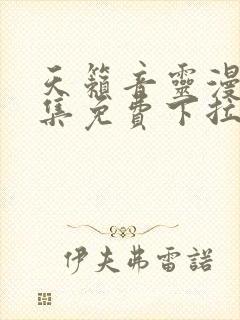 天籟音靈漫
集免費下拉
伊夫弗雷諾